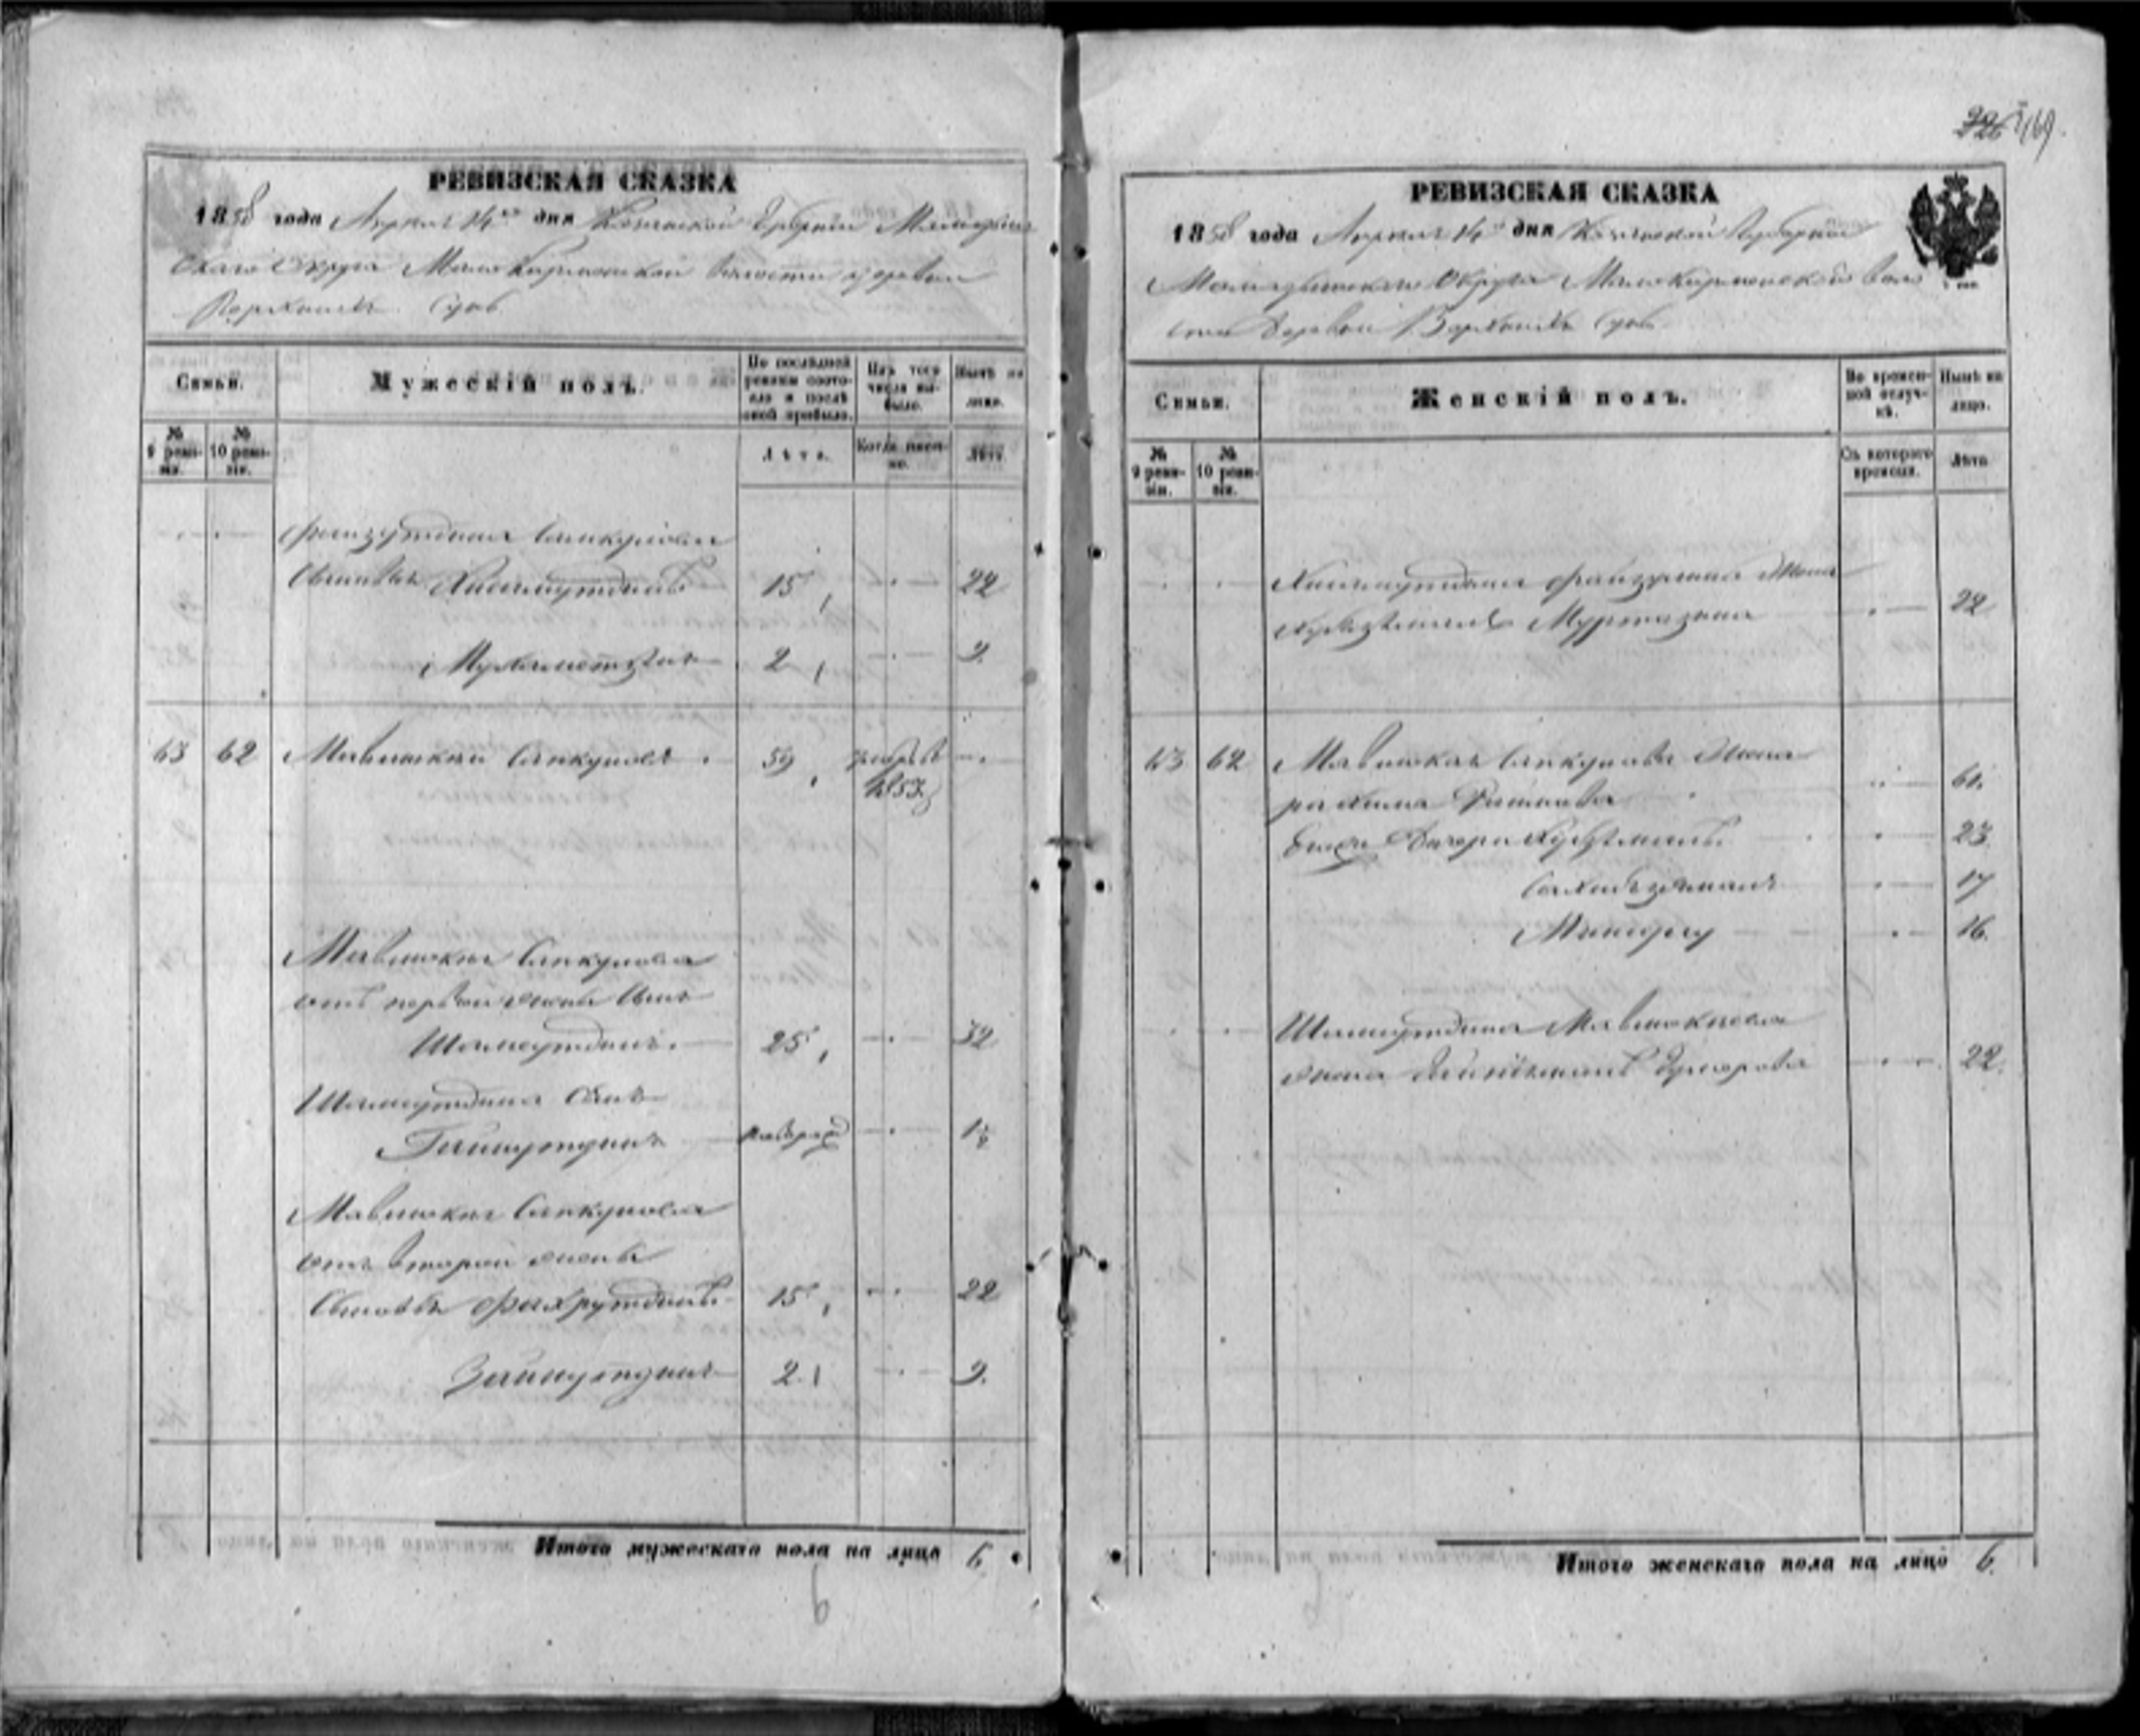 РЕВИЗСКАЯ СКАЗКА
1858 года Апреля 14го дня Казанской Губернии Мамадыш
скаго Округа Малокирменской волости деревни
Верхнихъ Сунь
Семьи.
Мужескій полъ.
По послѣдней ревизіи состояло и послѣ оной прибыло.
Изъ того числа выбыло.
Нынѣ на лицо.
№ 9 ревизіи.
№ 10 ревизіи.
Лѣта.
Когда именно.
Лѣта.
Файзутдина Сапкулова
Сыновья Хисамутдинъ 15 22
Мухаметзянъ 2 9
63 62 Мавлюкай Сапкуловъ 59 умеръ въ
1853
Мавлюкая Сапкулова
отъ первой жены сынъ
Шамсутдинъ 25 32
Шамсутдина сынъ
Гайнутдинъ новорожд 1½
Мавлюкая Сапкулова
отъ второй жены
Сыновья Фахрутдинъ 15 22
Зайнутдинъ 2 9
Итого мужескаго пола на лицо 6
РЕВИЗСКАЯ СКАЗКА
1858 года Апреля 14го дня Казанской Губернии
Мамадышскаго Округа Малокирменской воло
сти деревни Верхнихъ Сунь
Семьи.
Женскій полъ.
Во временной отлучкѣ.
Нынѣ на лицо.
№ 9 ревизіи.
№ 10 ревизіи.
Съ котораго времени.
Лѣта
Хисамутдина Файзуллина жена
Муртазина 22
63 62 Мавлюкая Сапкулова жена
61
Его дочери 23
Сахибзямалъ 17
16
Шамсутдина Мавлюкаева
жена 22
Итого женскаго пола на лицо 6